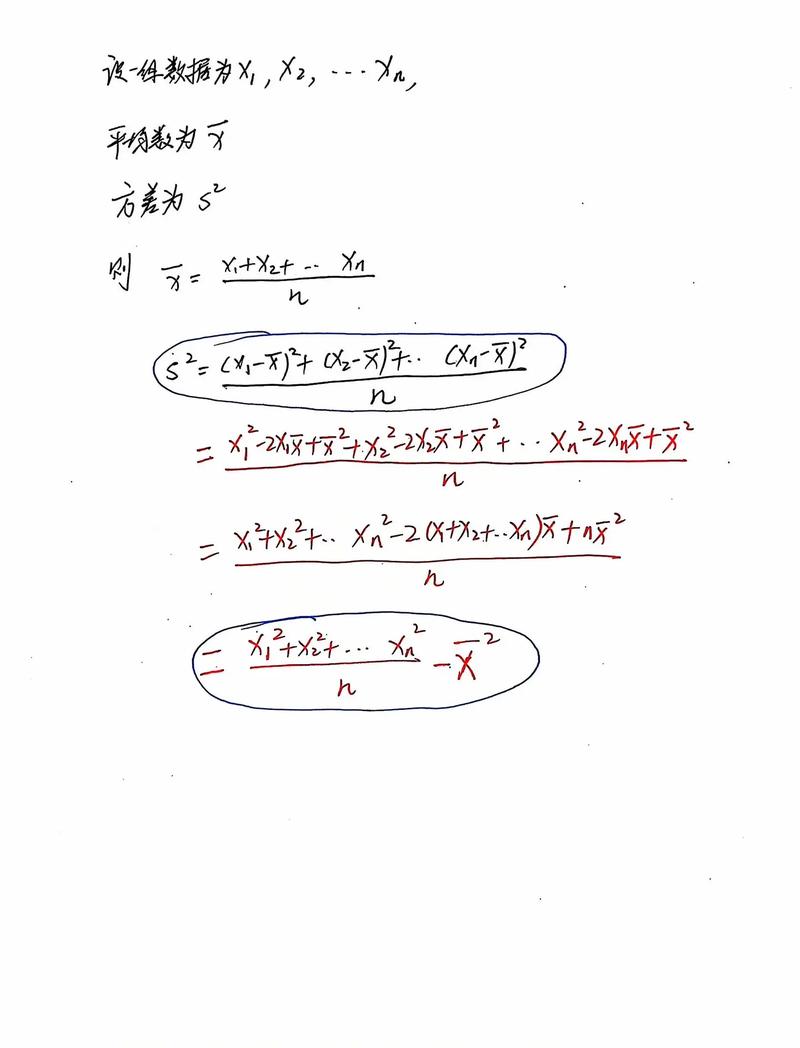 设一组数据为x₁, x₂, ⋯ xₙ,
平均数为 x̄
方差为 s²
则 x̄ = (x₁+x₂+ ⋯ xₙ)/n
s² = ((x₁-x̄)²+(x₂-x̄)²+⋯ (xₙ-x̄)²)/n
= (x₁²-2x₁x̄+x̄²+x₂²-2x₂x̄+x̄²+⋯ xₙ²-2xₙx̄+x̄²)/n
= (x₁²+x₂²+⋯ xₙ²-2(x+x₂+⋯xₙ)x̄+nx̄²)/n
= (x₁²+x₂²+⋯ xₙ²)/n -x̄²